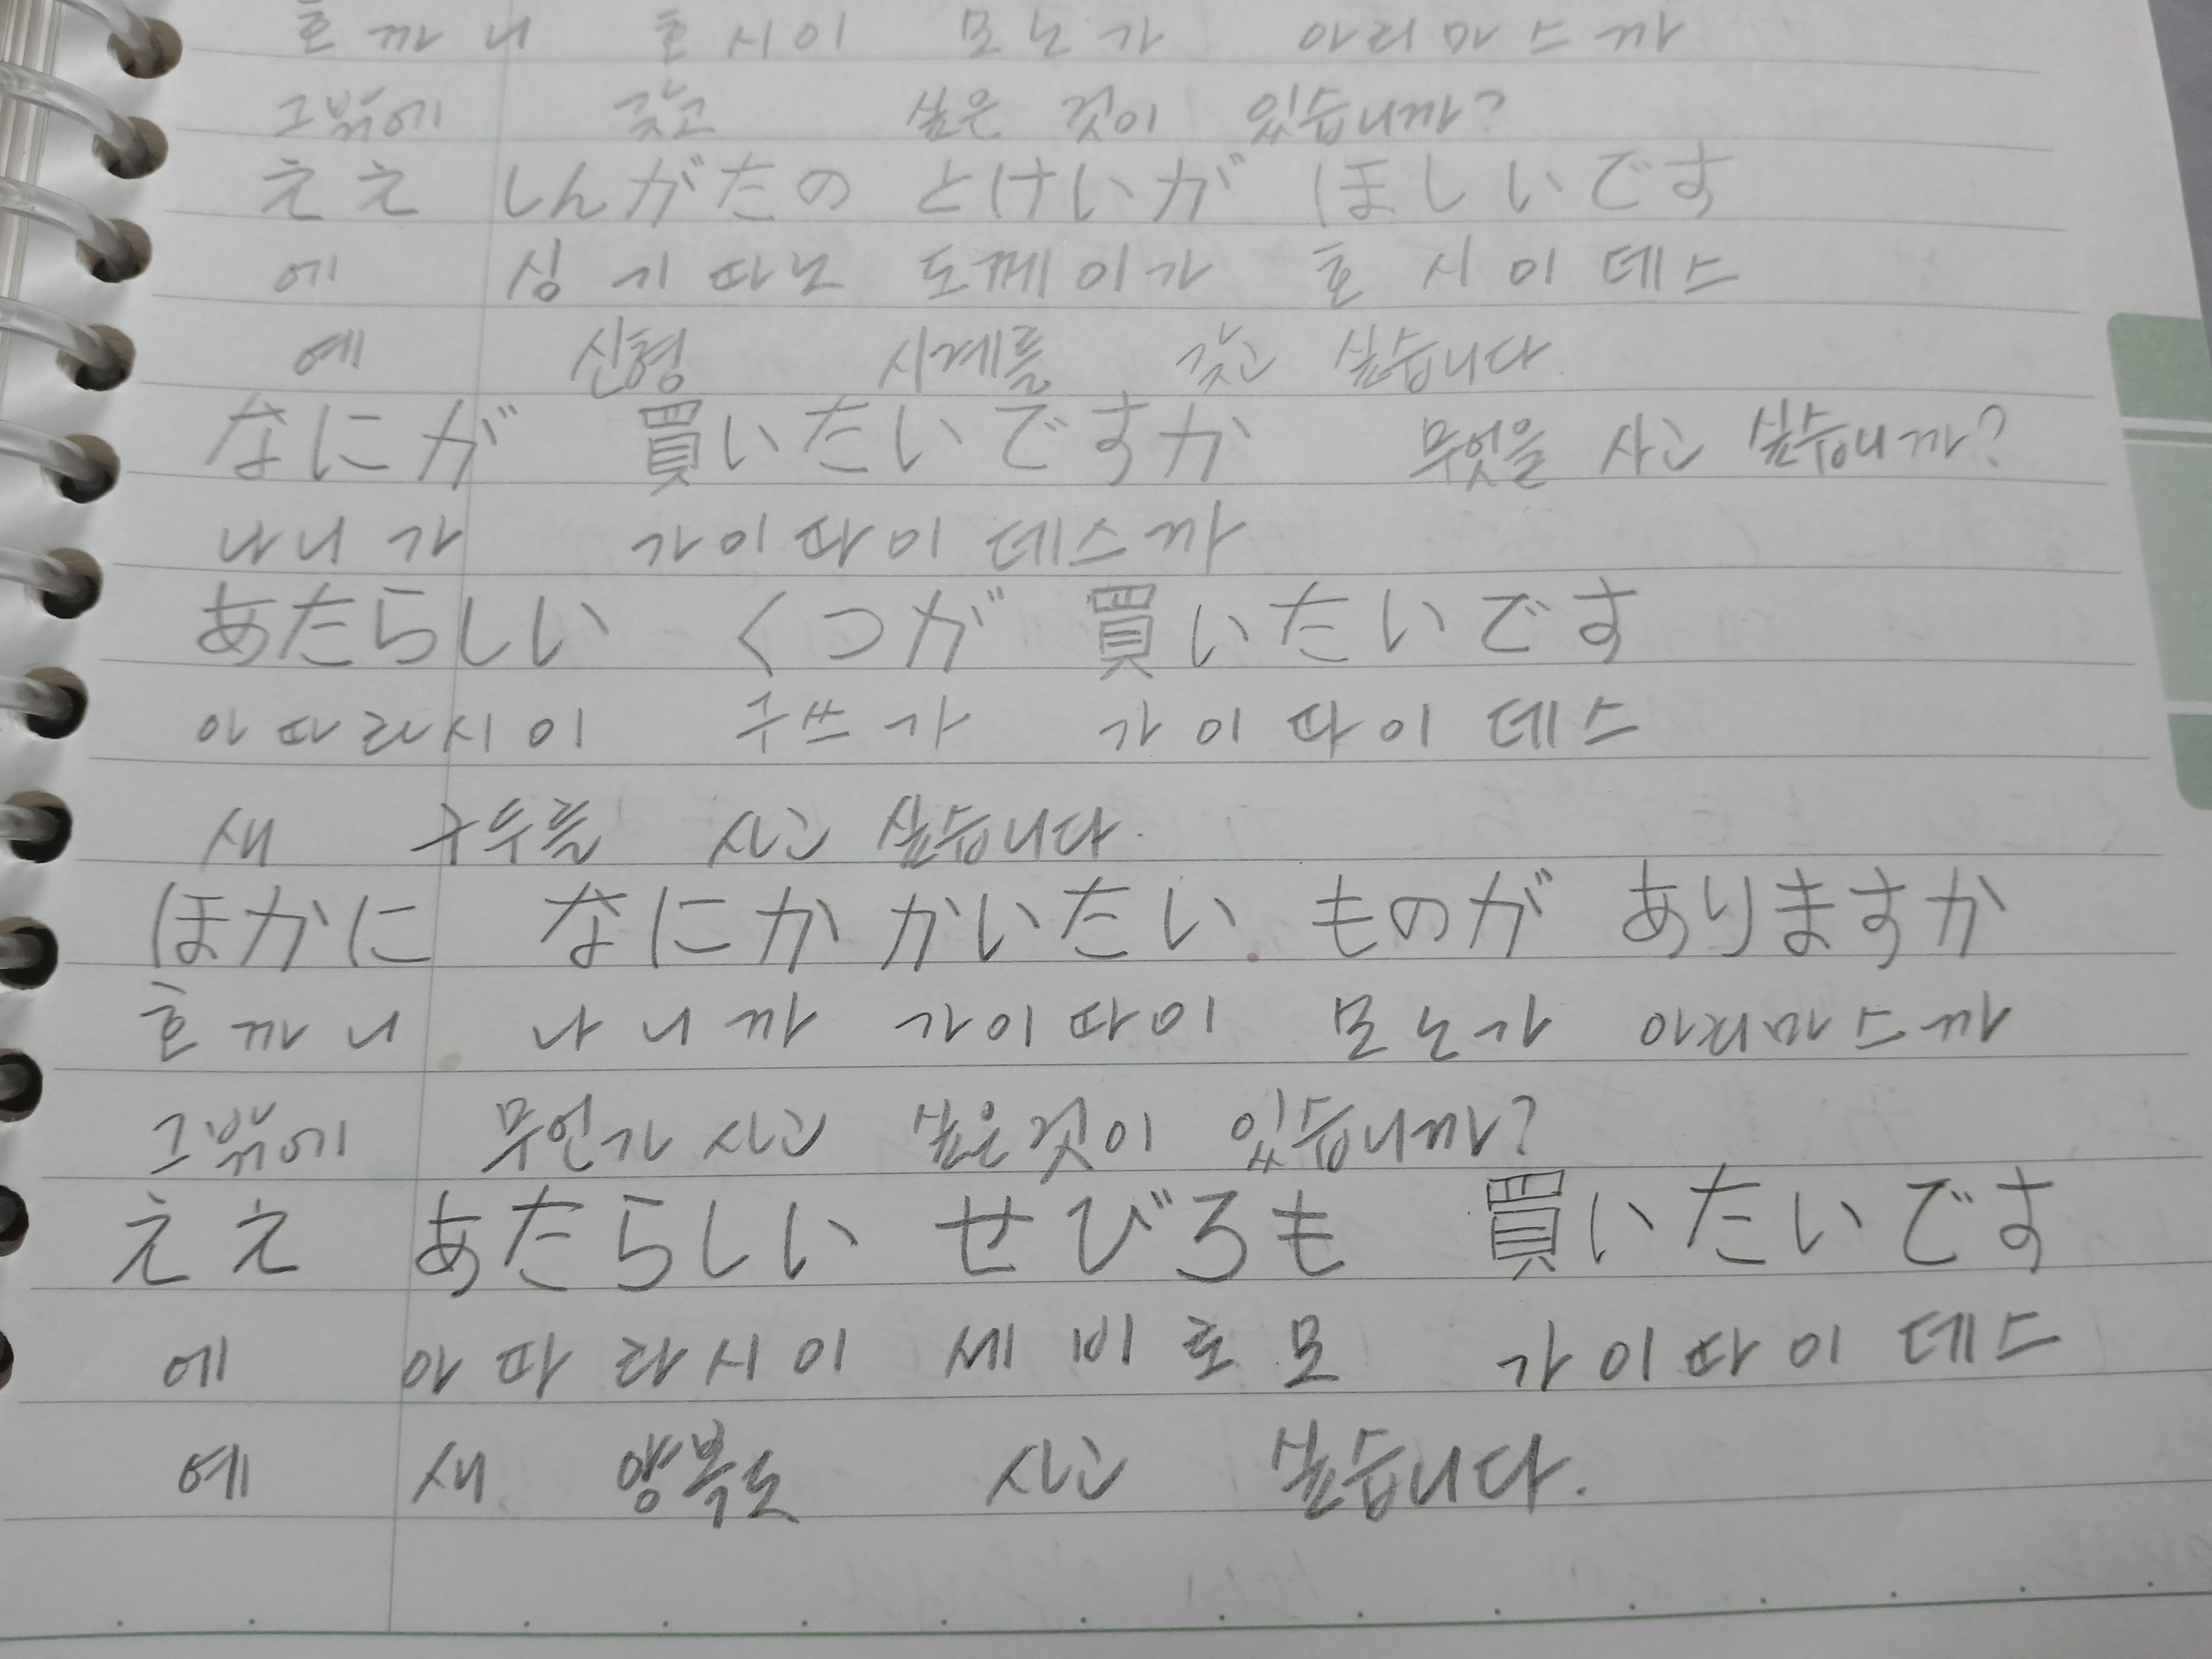 호 까 니 호 시 이 모 노 가 아 리 마 스 까
그밖에 갖고 싶은 것이 있습니까?
ええ しんがたの とけいが ほしいです
에 싱 기 따 노 도 께 이 가 호 시 이 데 스
예 신형 시계를 갖고 싶습니다
なにが 買いたいですか 무엇을 사고 싶습니까?
나 니 가 가 이 따 이 데 스 까
あたらしい くつが 買いたいです
아 따 라 시 이 구 쓰 가 가 이 따 이 데 스
새 구두를 사고 싶습니다.
ほかに なにか かいたい ものが ありますか
호 까 니 나 니 까 가 이 따 이 모 노 가 아 리 마 스 까
그밖에 무언가 사고 싶은것이 있습니까?
ええ あたらしい せびろも 買いたいです
에 아 따 라 시 이 세 비 로 모 가 이 따 이 데 스
예 새 양복도 사고 싶습니다.